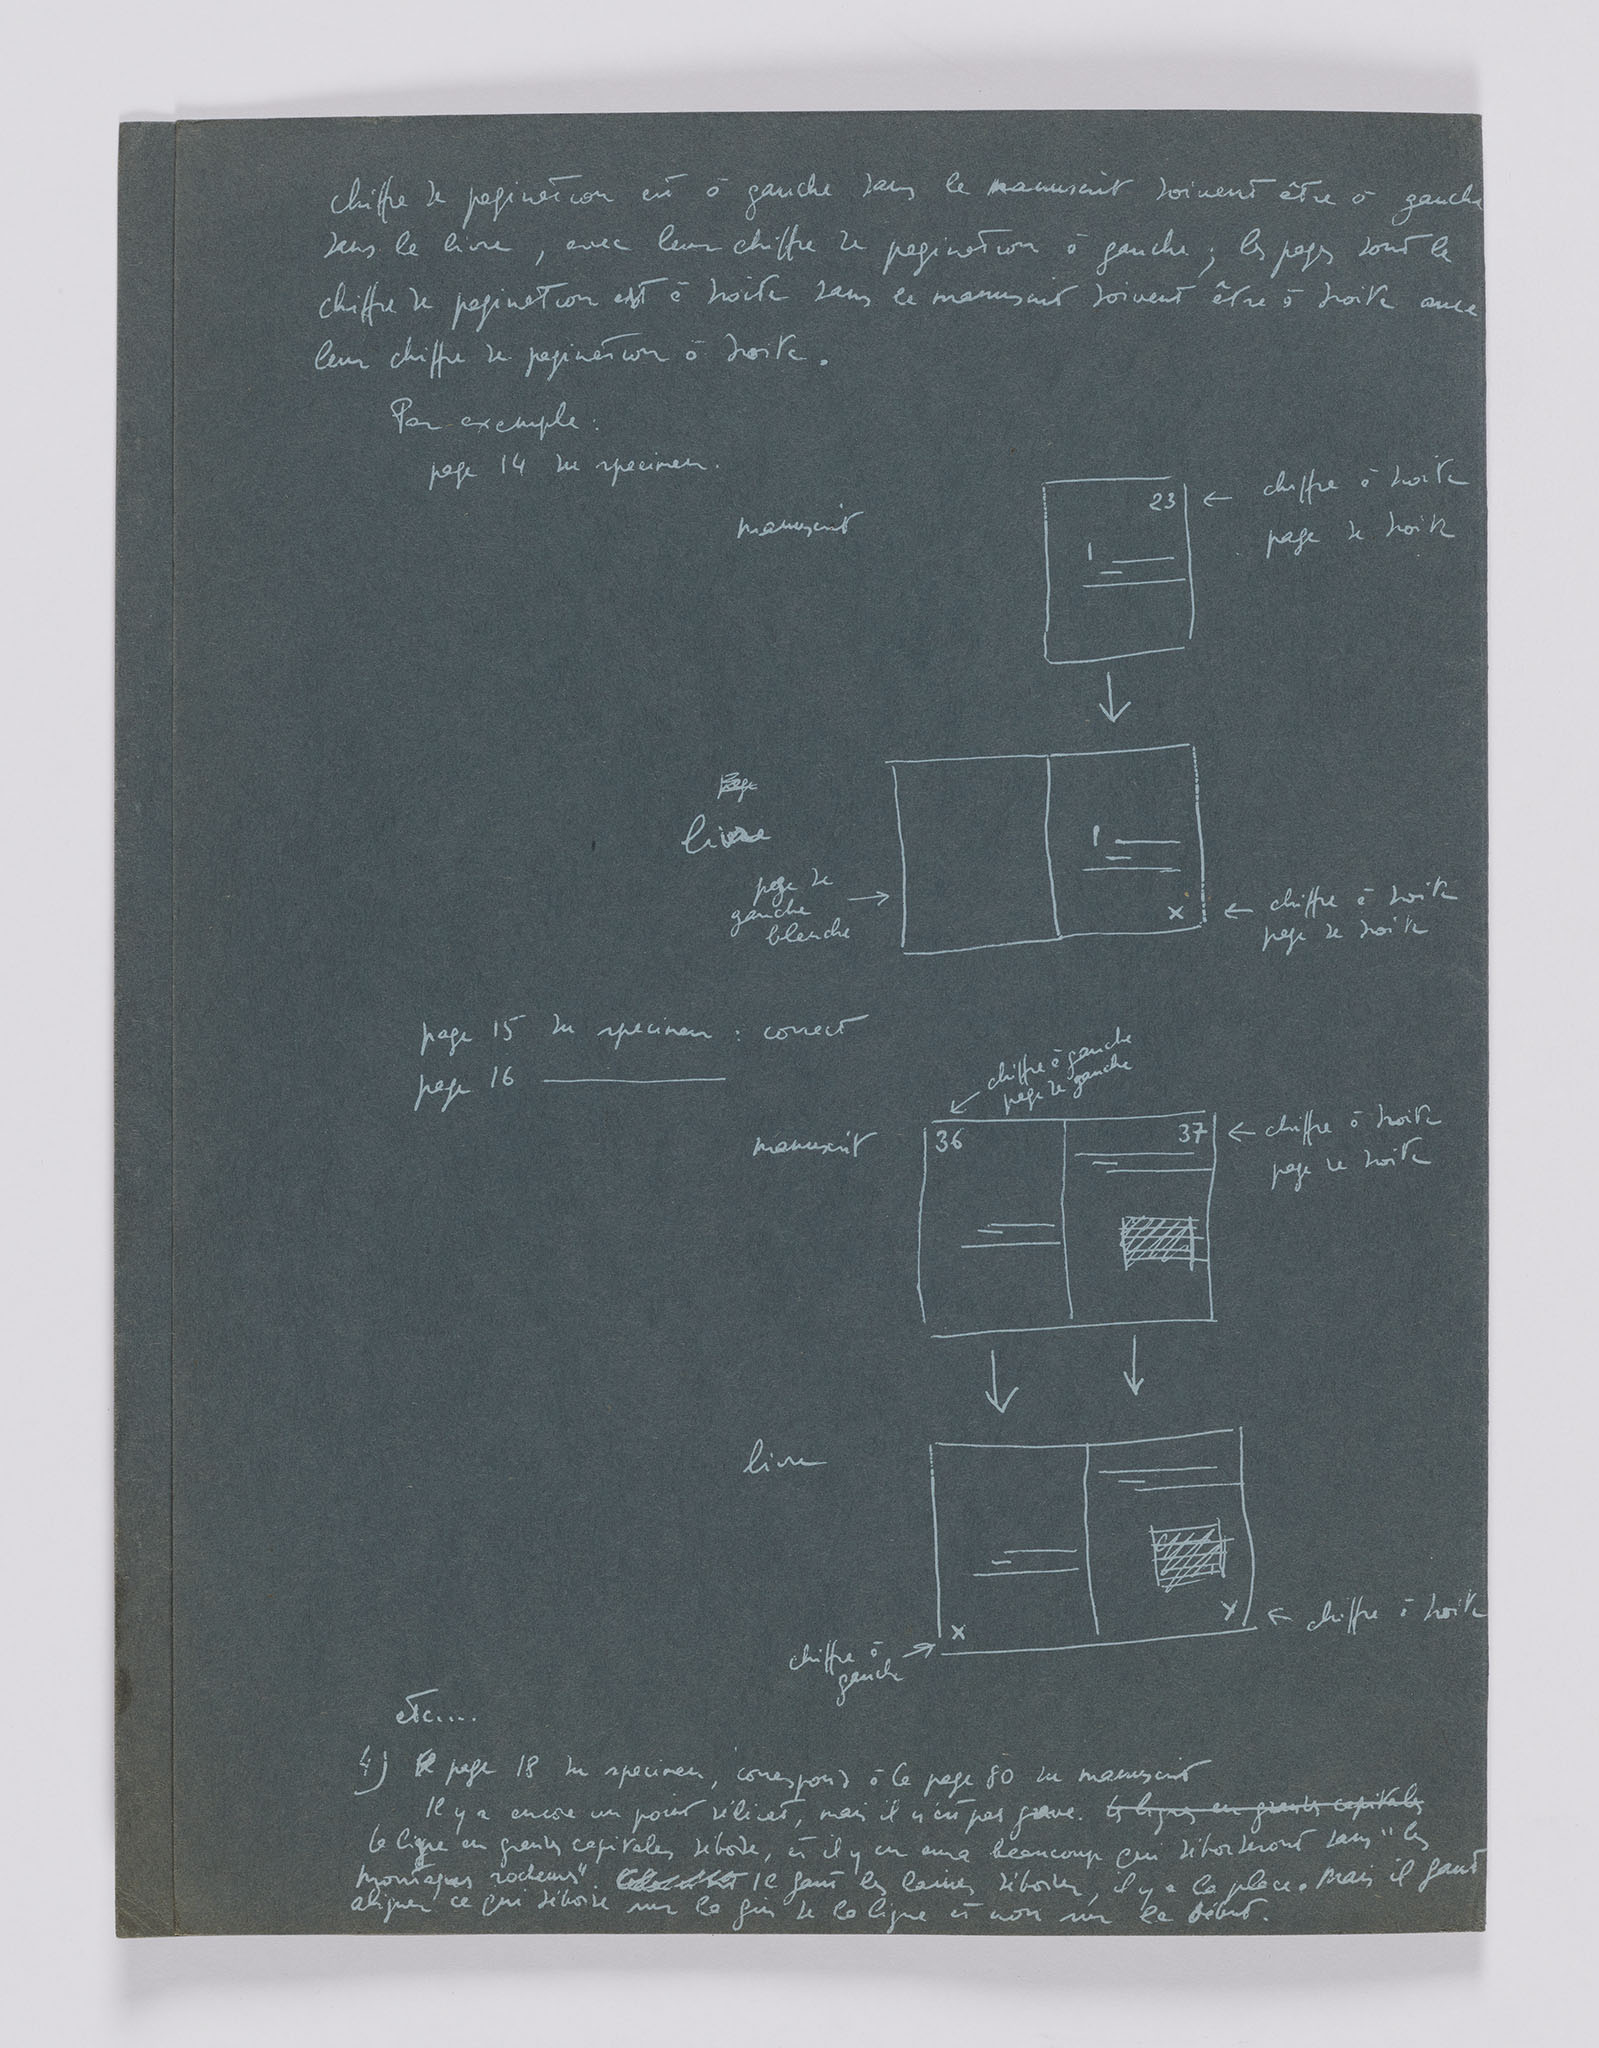 chiffre de pagination est à gauche dans le manuscrit doivent être à gauche
dans le livre, avec leur chiffre de pagination à gauche; les pages dont le
chiffre de pagination est à droite dans le manuscrit doivent être à droite avec
leur chiffre de pagination à droite.
Par exemple:
page 14 du specimen.
manuscrit
23
← chiffre à droite
page de droite
livre
page de
gauche
blanche →
x
← chiffre à droite
page de droite
page 15 du specimen : correct
page 16 ————
chiffre à gauche
page de gauche
manuscrit
36
37
← chiffre à droite
page de droite
livre
x
x
← chiffre à droite
chiffre à
gauche →
etc....
4) page 18 du specimen, correspond à la page 80 du manuscrit
Il y a encore un point délicat, mais il n'est pas grave. les lignes en grandes capitales
la ligne en grandes capitales déborde, et il y en aura beaucoup qui déborderont dans "les
montagnes rocheuses". Il faut les laisser déborder, il y a la place. Mais il faut
aligner ce qui déborde sur la fin de la ligne et non sur le début.